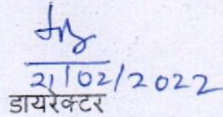 21/02/2022
डायरेक्टर